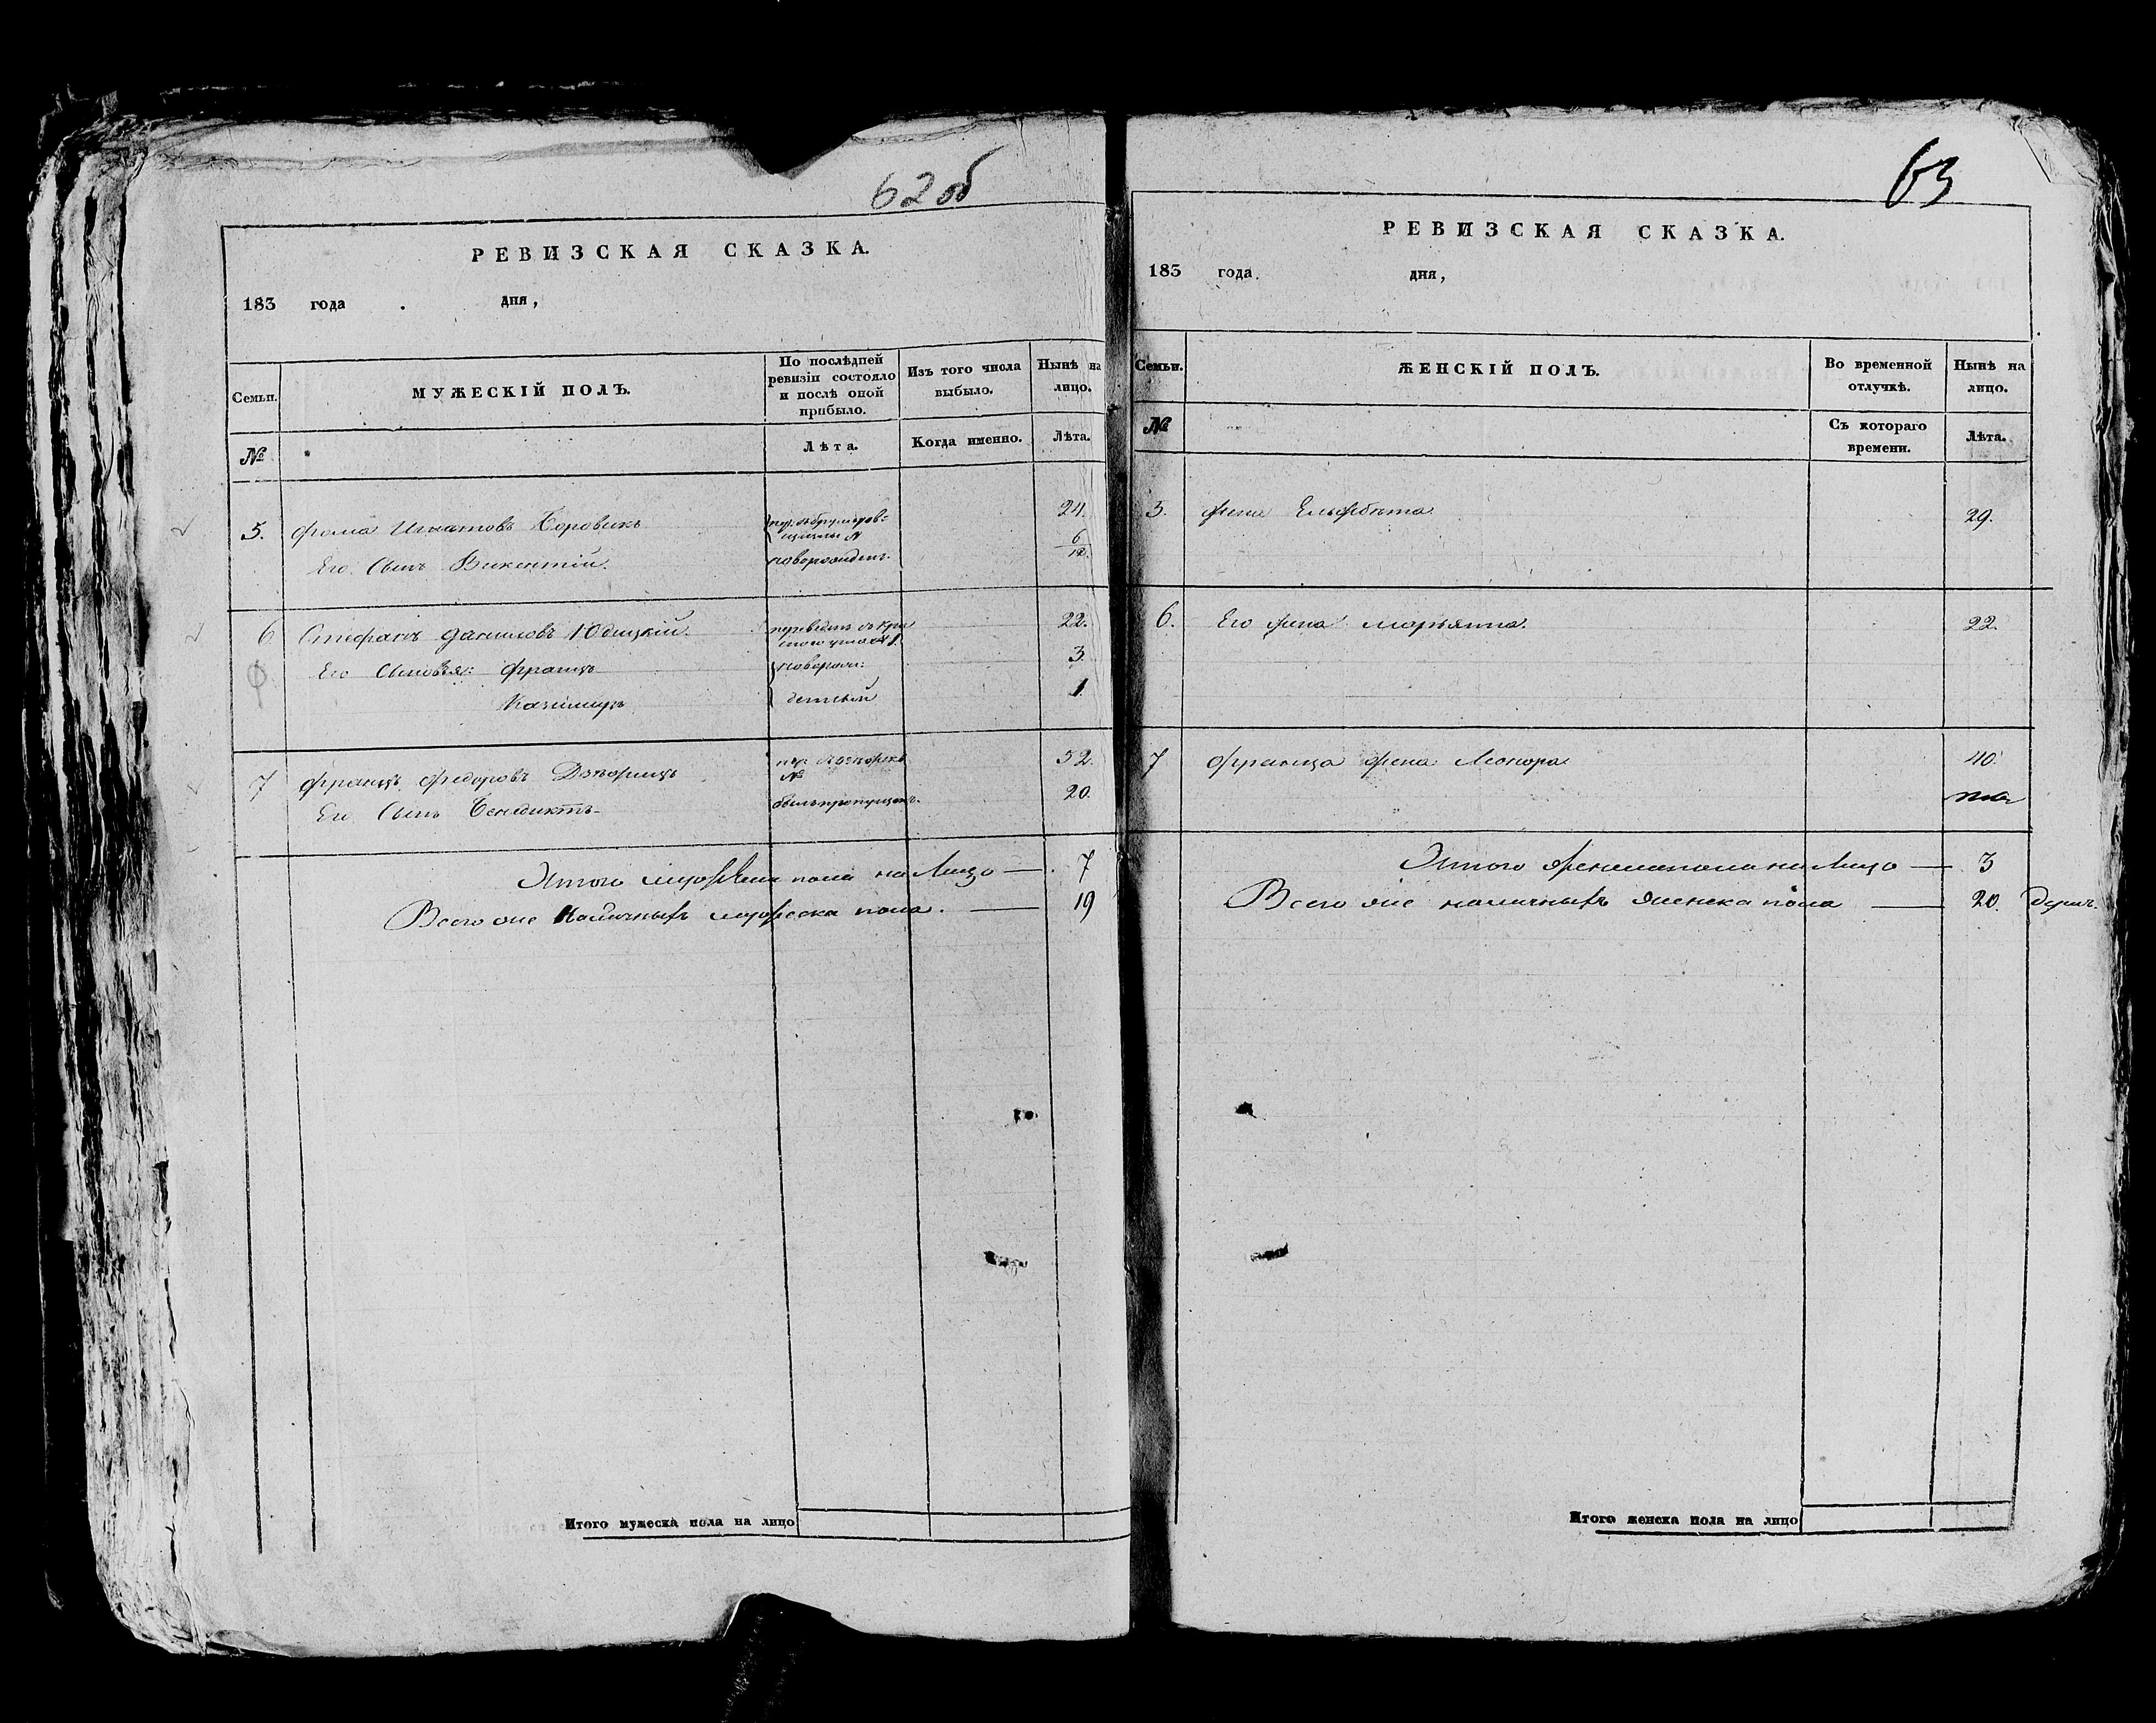 62 об
РЕВИЗСКАЯ СКАЗКА.
183 года . дня,
Семьи.
МУЖЕСКІЙ ПОЛЪ.
По послѣдней
ревизіи состояло
и послѣ оной
прибыло.
Изъ того числа
выбыло.
Нынѣ на
лицо.
№
Лѣта.
Когда именно.
Лѣта.
5. Фома Игнатовъ Боровикъ 24.
Его Сынъ Викентій. новорожден. 6/12.
6 Стефанъ Даниловъ Юдицкій. переведенъ 22.
Его Сыновья: Францъ новорож: 3.
Казимиръ денный 1.
7 Францъ Федоровъ 52.
№
Его Сынъ Бенедиктъ былъ пропущен. 20.
Итого мужеска пола на Лицо — 7
Всего же Наличныхъ мужеска пола. — 19
Итого мужеска пола на лицо
63
РЕВИЗСКАЯ СКАЗКА.
183 года. дня,
Семьи.
ЖЕНСКІЙ ПОЛЪ.
Во временной
отлучкѣ.
Нынѣ на
лицо.
№
Съ котораго
времени.
Лѣта.
5. Жена Ельжбѣта 29.
6. Его жена Марьянна 22.
7 Францa жена Леонора 40.
Итого женска пола на Лицо — 3
Всего же наличныхъ женска пола — 20. Душъ.
Итого женска пола на лицо